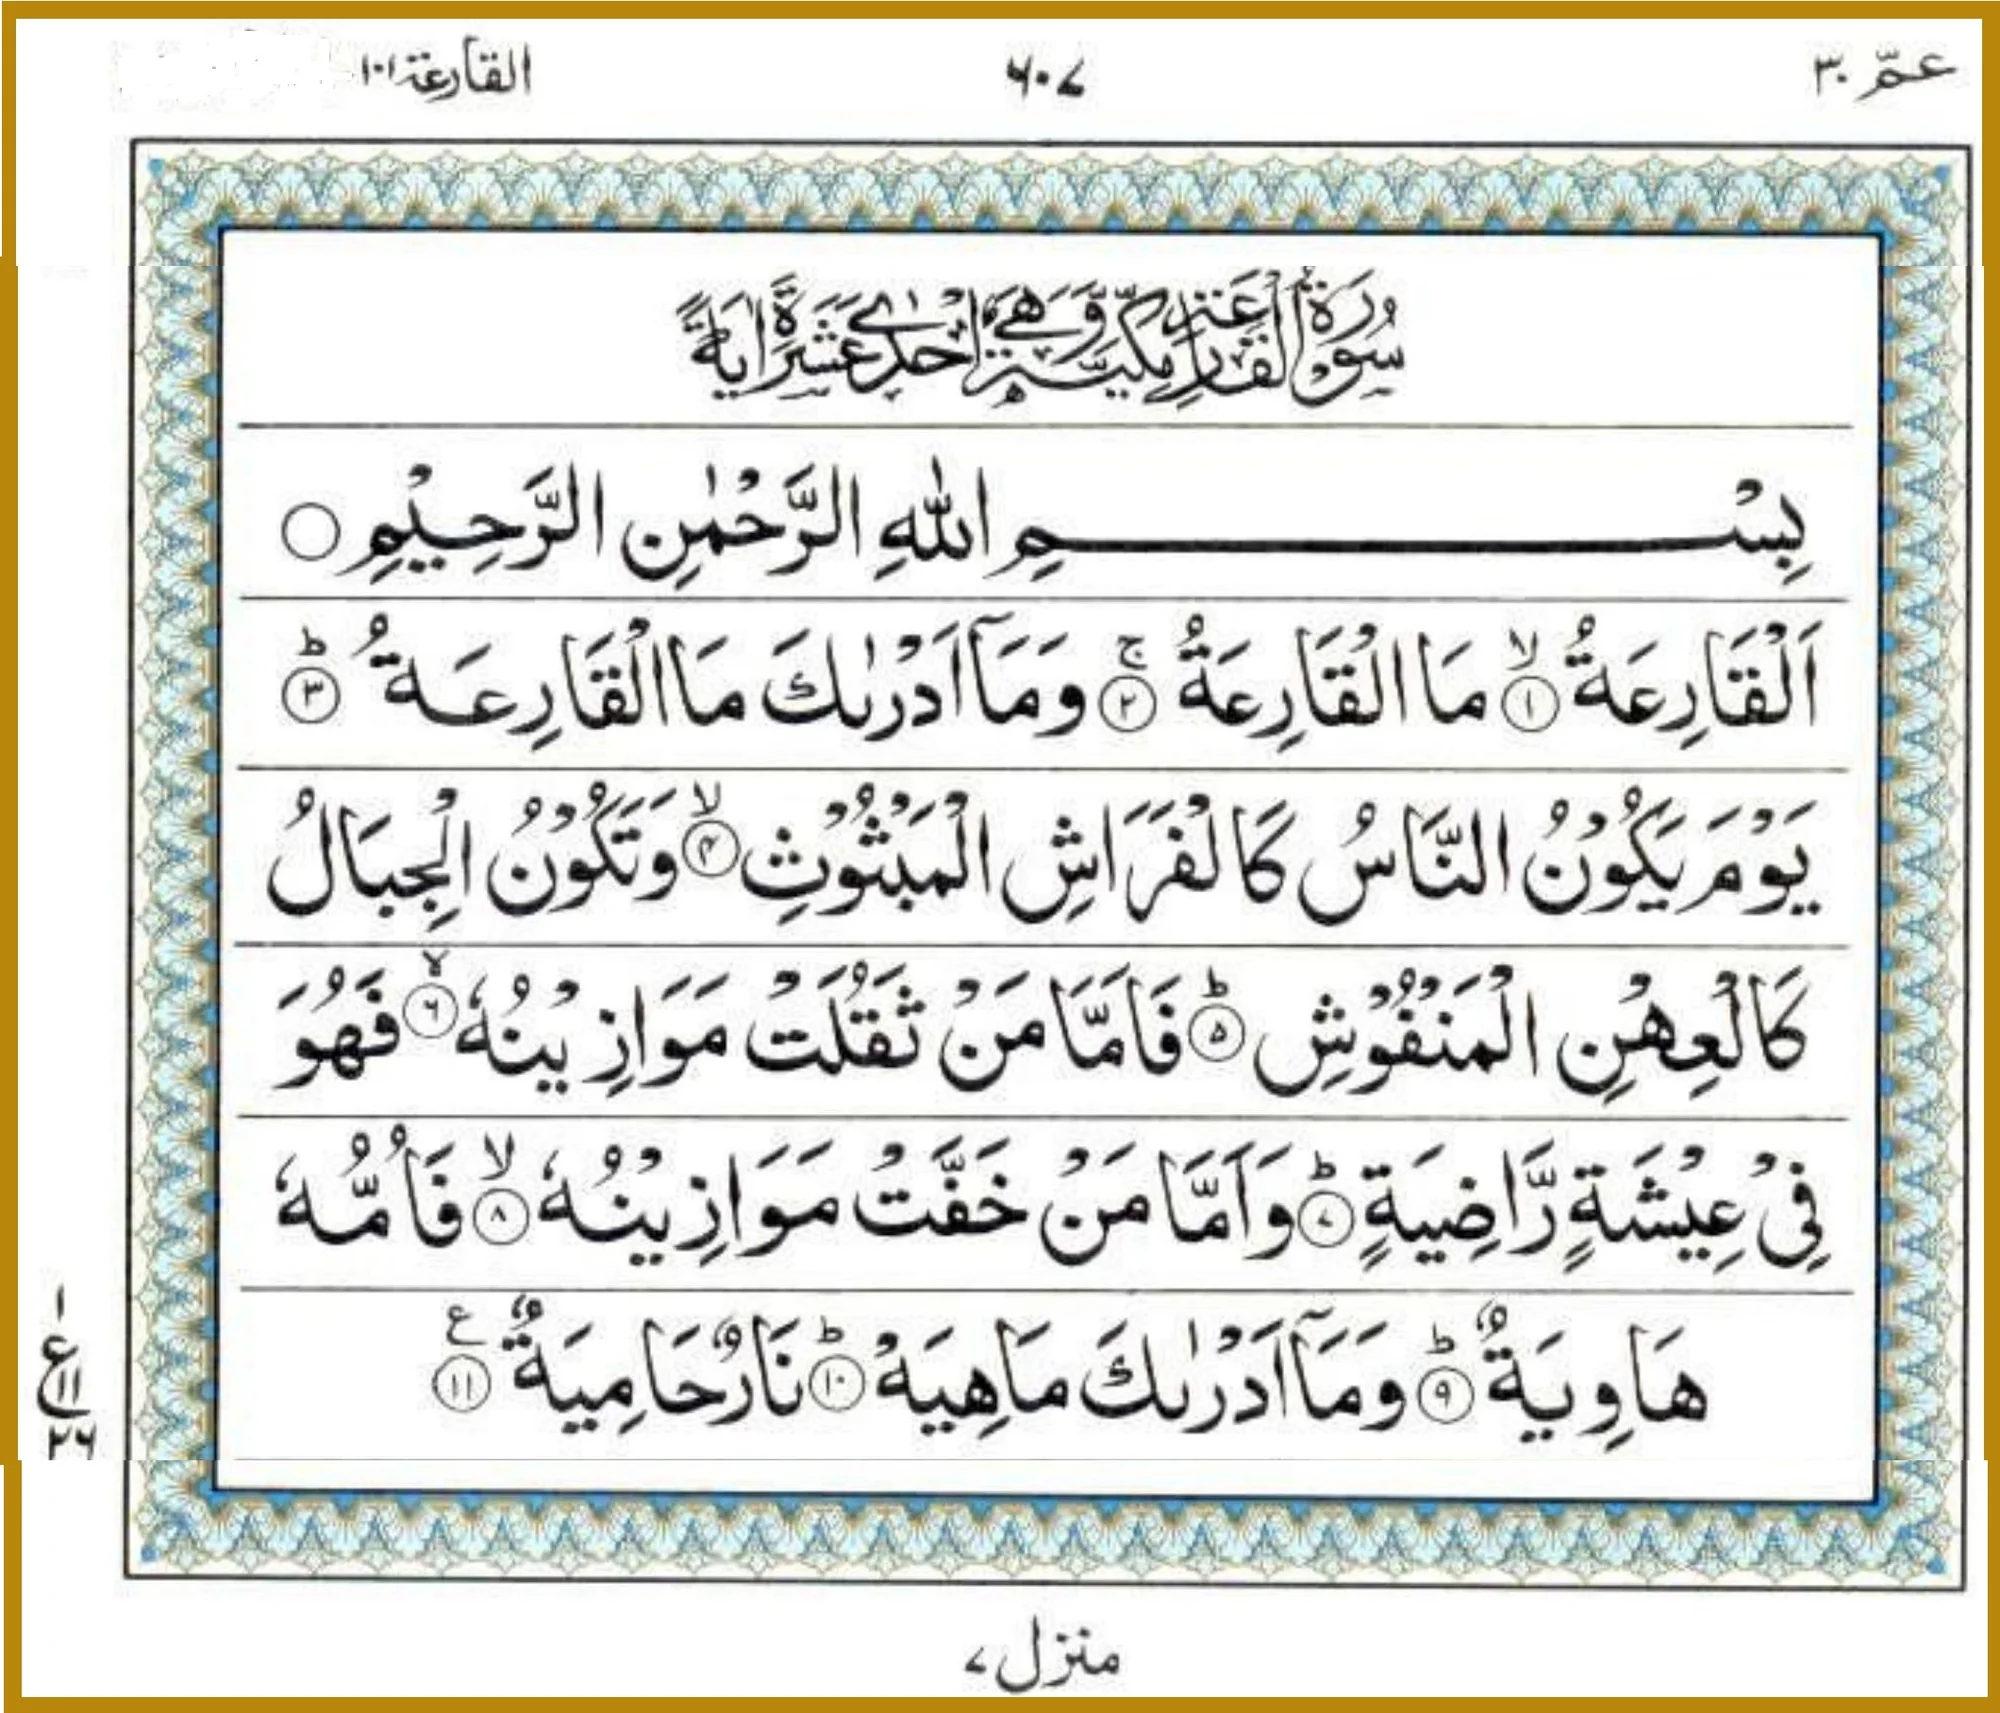 عمّ ٣٠
٦٠٧
القارعة ١٠١
سُوْرَةُ الْقَارِعَةِ مَكِّيَّةٌ وَّهِيَ اِحْدٰى عَشَرَةَ اٰيَةً
بِسْمِ اللّٰهِ الرَّحْمٰنِ الرَّحِيْمِ ○
اَلْقَارِعَةُ ۙ﴿١﴾ مَا الْقَارِعَةُ ۚ﴿٢﴾ وَمَاۤ اَدْرٰىكَ مَا الْقَارِعَةُ ؕ﴿٣﴾
يَوْمَ يَكُوْنُ النَّاسُ كَالْفَرَاشِ الْمَبْثُوْثِ ۙ﴿٤﴾ وَتَكُوْنُ الْجِبَالُ
كَالْعِهْنِ الْمَنْفُوْشِ ؕ﴿٥﴾ فَاَمَّا مَنْ ثَقُلَتْ مَوَازِيْنُهٗ ۙ﴿٦﴾ فَهُوَ
فِيْ عِيْشَةٍ رَّاضِيَةٍ ؕ﴿٧﴾ وَاَمَّا مَنْ خَفَّتْ مَوَازِيْنُهٗ ۙ﴿٨﴾ فَاُمُّهٗ
هَاوِيَةٌ ؕ﴿٩﴾ وَمَاۤ اَدْرٰىكَ مَا هِيَهْ ؕ﴿١٠﴾ نَارٌ حَامِيَةٌ ﴿١١﴾ ع
١
ع
١١
٢٦
منزل ٧